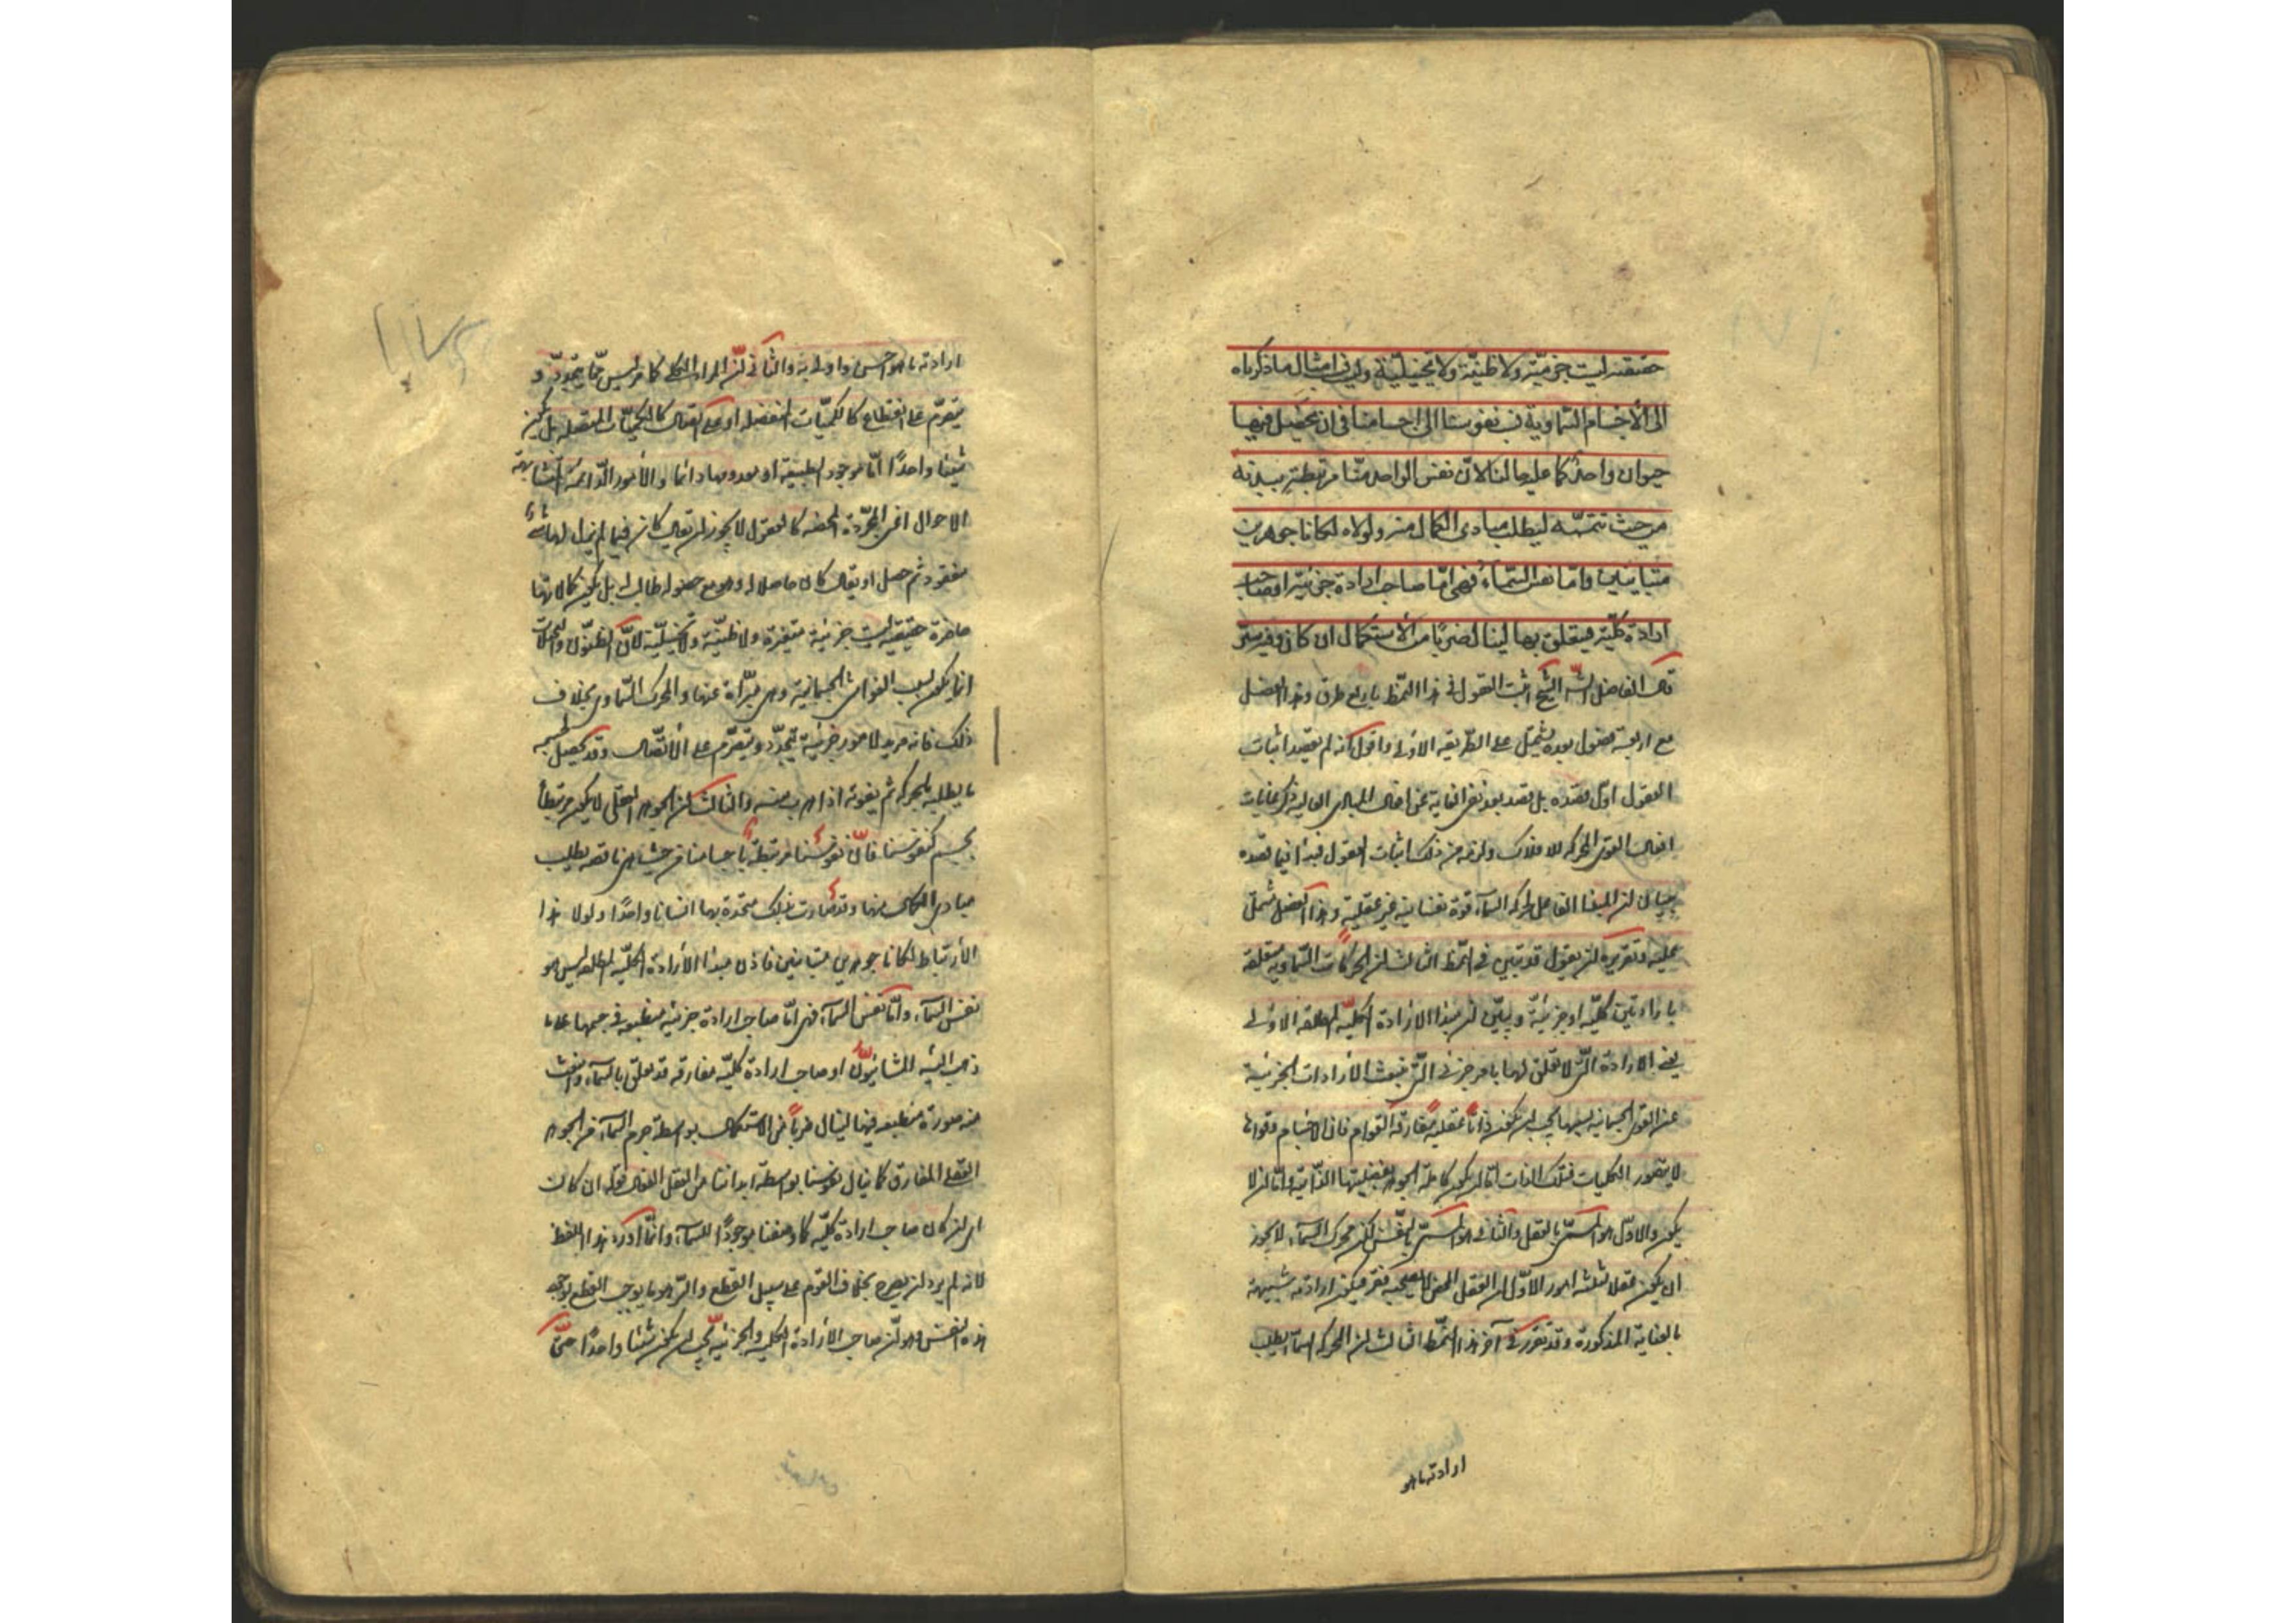 حقيقية ليست جزئية ولا ظنية ولا تخيلية وليت امثال ما ذكرناه
الى الأجسام السماوية نسب نفوسنا الى اجسامنا فى ان يحصل فيها
حيوان واحد كما عليه حالنا لانّ نفس الواحد منّا مرتبطة ببدنه
من حيث تتمّه ليطلب مبادى الكمال منه ولولاه لكانا جوهرين
متباينين وامّا نفس السّماء فهى امّا صاحب ارادة جزئيّة او صاحب
ارادة كلّية يتعلق بها لينال ضربًا من الأستكمال ان كان وفيه سرّ
قال الفاضل الشه الشيخ اثبت العقول فى هذا النمط باربع طرق وهذا الفصل
مع اربعة فصول بعده يشتمل على الطريقة الاولى واقول انه لم يقصد اثبات
العقول اول قصده بل قصد بعد نفى الغاية عن افعال المبادى العالية ذكر غايات
افعال القوى المحركة للافلاك ولزمه من ذلك اثبات العقول فبدأ فيما قصده
ببيان ان المبدا الفاعل لحركة السماء قوة نفسانية غير عقلية وهذا الفصل مشتمل
عليه وتقريره ان يقول قد تبين فى النمط الثالث ان الحركات السماوية متعلقة
بارادتين كلّية او جزئيّة وبيّن ان مبدا الارادة الكليّة المطلقة الاولى
يعنى الارادة الّتى لا تعلّق لها بامر جزئى الّتى تنبعث الارادات الجزئية
عنها القوى الجسمانية بسببها يجب ان يكون ذاتًا عقلية مفارقة القوام فان الاجسام وقواها
لا يتصور الكليات فتلك الذات امّا ان يكون كاملة الجوهر بفضيلتها الذّاتية وامّا ان لا
يكون والاوّل هو المسمّى بالعقل والثانى هو المسمّى بالنّفس لكن محرك السّماء لا يجوز
ان يكون عقلا لثلثة امور الاوّل ان العقل المحض لا يصحبه فقر فيكون ارادته شبيهة
بالعناية المذكورة وقد تقرر فى آخر هذا النمّط الثالث ان المحركة السماء يطلب
ارادتها هو
ارادته ما هو احسن واولى به والثّانى انّ المراد الكلى كما مر ليس ممّا يتجدّد و
يتصرّم على انقطاع كالكميّات المنفصلة او على اتصال كالكميّات المتصلة بل يكون
شيئا واحدًا امّا موجود الطبيعة او معدومها دائما والأمور الدّائمة المتشابهة
الاحوال اعنى المجّردة المحضة كالعقول لا يجوز ان يقال كان فيما لم يزل لها شئ
مفقود ثم حصل او يقال كان حاصلا له وهو مع حصوله طالب له بل يكون كمالاتها
حاضرة حقيقية ليست جزئية متغيّرة ولا ظنّيّة ولا تخيليّة لانّ الظنون والتخيلات
انما يكون بسبب القوى الجسمانية وهى مبّرأة عنها والمحرك السّماوى بخلاف
ذلك فانه مريد لامور جزئية يتجدّد ويتصرّم على الأتّصال وقد يحصل لجسمه
ما يطلبه بالحركة ثم يفوته اذا هرب منه والثالث ان الجوهر العقلى لا يكون مرتبطا
بجسم كنفوسنا فانّ نفوسنا مرتبطة باجسامنا من حيث هى ناقصة يطلب
مبادى الكمال منها وقد صارت بذلك متحدة بها انسانا واحدًا ولولا هذا
الأرتباط لكانا جوهرين متباينين فاذن مبدا الأرادة الكلّيّة المطلقة ليس هو
نفس السّماء وامّا نفس السماء فهى امّا صاحب ارادة جزئية منطبعة فى جسمها على ما
ذهب اليه المشائيون او صاحب ارادة كليّة مفارقة قد تعلق بالسماء وانبعث
منه صورة منطبعة فيها لينال ضربًا من الاستكمال بواسطة جرم السماء من الجوهر
العقلى المفارق كما ينال نفوسنا بواسطة ابداننا من العقل الفعال قوله ان كان
اى ان كان صاحب ارادة كليّة كما وصفنا موجودًا للسماء وانّما اورد هذا اللفظ
لانه لم يرد ان يصرح بخلاف القوم على سبيل القطع والسّر هو ما يوجب القطع بوجه
هذه النفس وهو انّ صاحب الأرادة الكلية والجزئية يجب ان يكون شيئا واحدًا حتّى